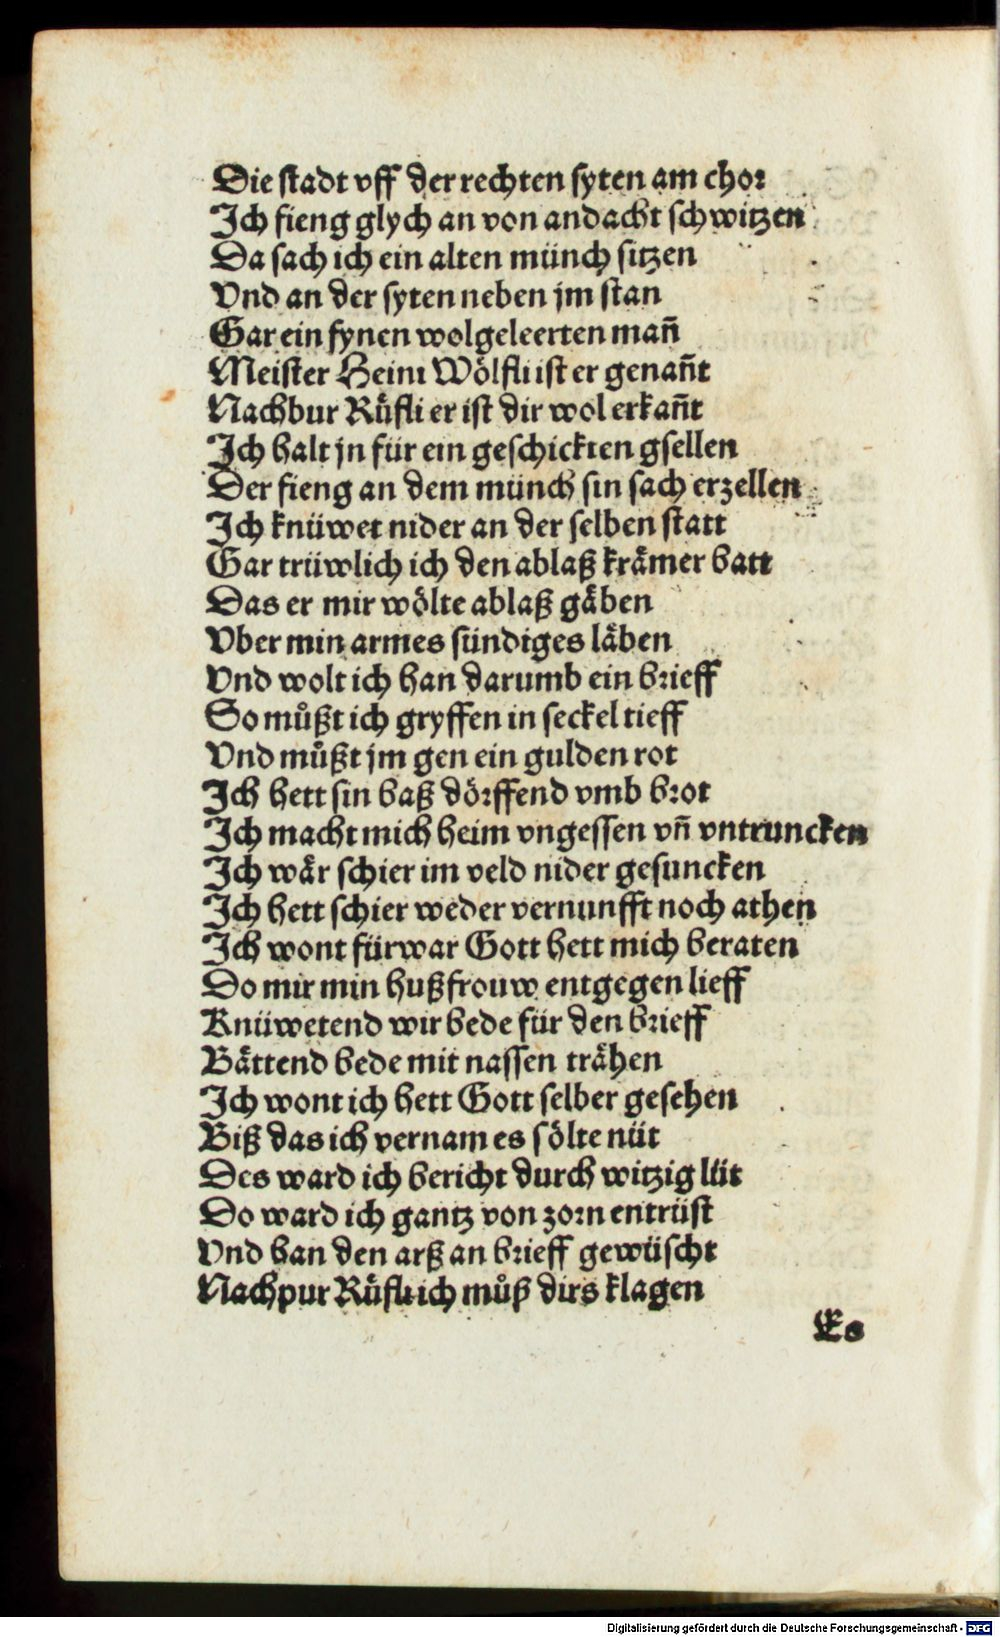 Die stadt vff der rechten syten am chor
Jch fieng glych an von andacht schwitzen
Da sach ich ein alten münch sitzen
Vnd an der syten neben jm stan
Gar ein fynen wolgeleerten man̄
Meister Heini Wölfli ist er genan̄t
Nachbur Rüfli er ist dir wol erkan̄t
Jch halt jn für ein geschickten gsellen
Der fieng an dem münch sin sach erzellen
Jch knüwet nider an der selben statt
Gar trüwlich ich den ablaß krämer batt
Das er mir wölte ablaß gäben
Vber min armes sündiges läben
Vnd wolt ich han darumb ein brieff
So můßt ich gryffen in seckel tieff
Vnd můßt jm gen ein gulden rot
Jch hett sin baß dörffend vmb brot
Jch macht mich heim vngessen vn̄ vntruncken
Jch wär schier im veld nider gesuncken
Jch hett schier weder vernunfft noch athen
Jch wont fürwar Gott hett mich beraten
Do mir min hußfrouw entgegen lieff
Knüwetend wir bede für den brieff
Bättend bede mit nassen trähen
Jch wont ich hett Gott selber gesehen
Biß das ich vernam es sölte nüt
Des ward ich bericht durch witzig lüt
Do ward ich gantz von zorn entrüst
Vnd han den arß an brieff gewüscht
Nachpur Rüfli ich můß dirs klagen
Es
Digitalisierung gefördert durch die Deutsche Forschungsgemeinschaft - DFG